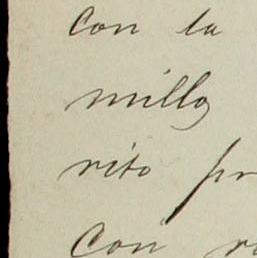 con la
millo
rito pr
Con